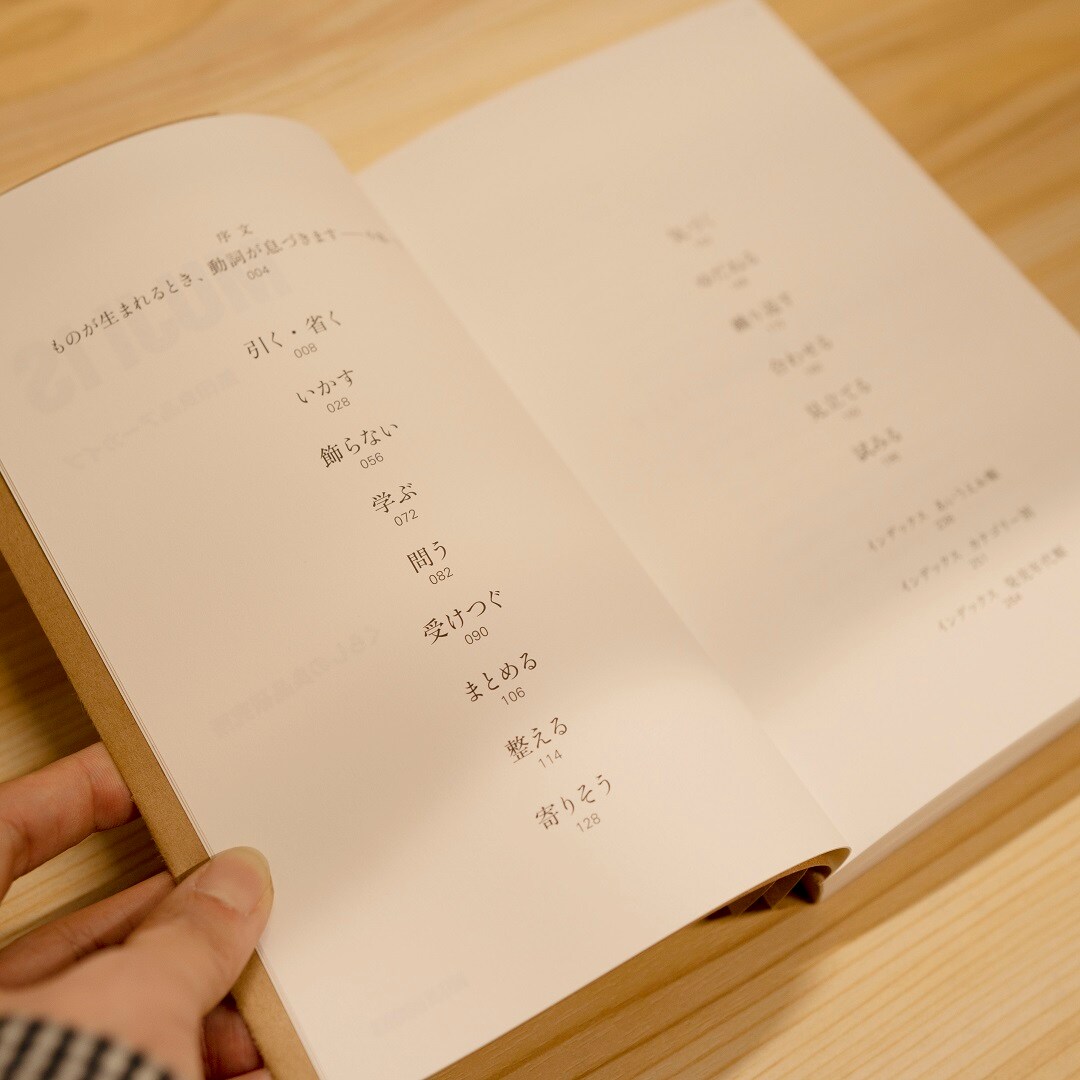 序文
ものが生まれるとき、動詞が息づきます
004
引く・省く
008
いかす
028
飾らない
056
学ぶ
072
問う
082
受けつぐ
090
まとめる
106
整える
114
寄りそう
128
繰り返す
合わせる
見立てる
試みる
インデックス あいうえお順
インデックス カテゴリー別
インデックス 発売年代順